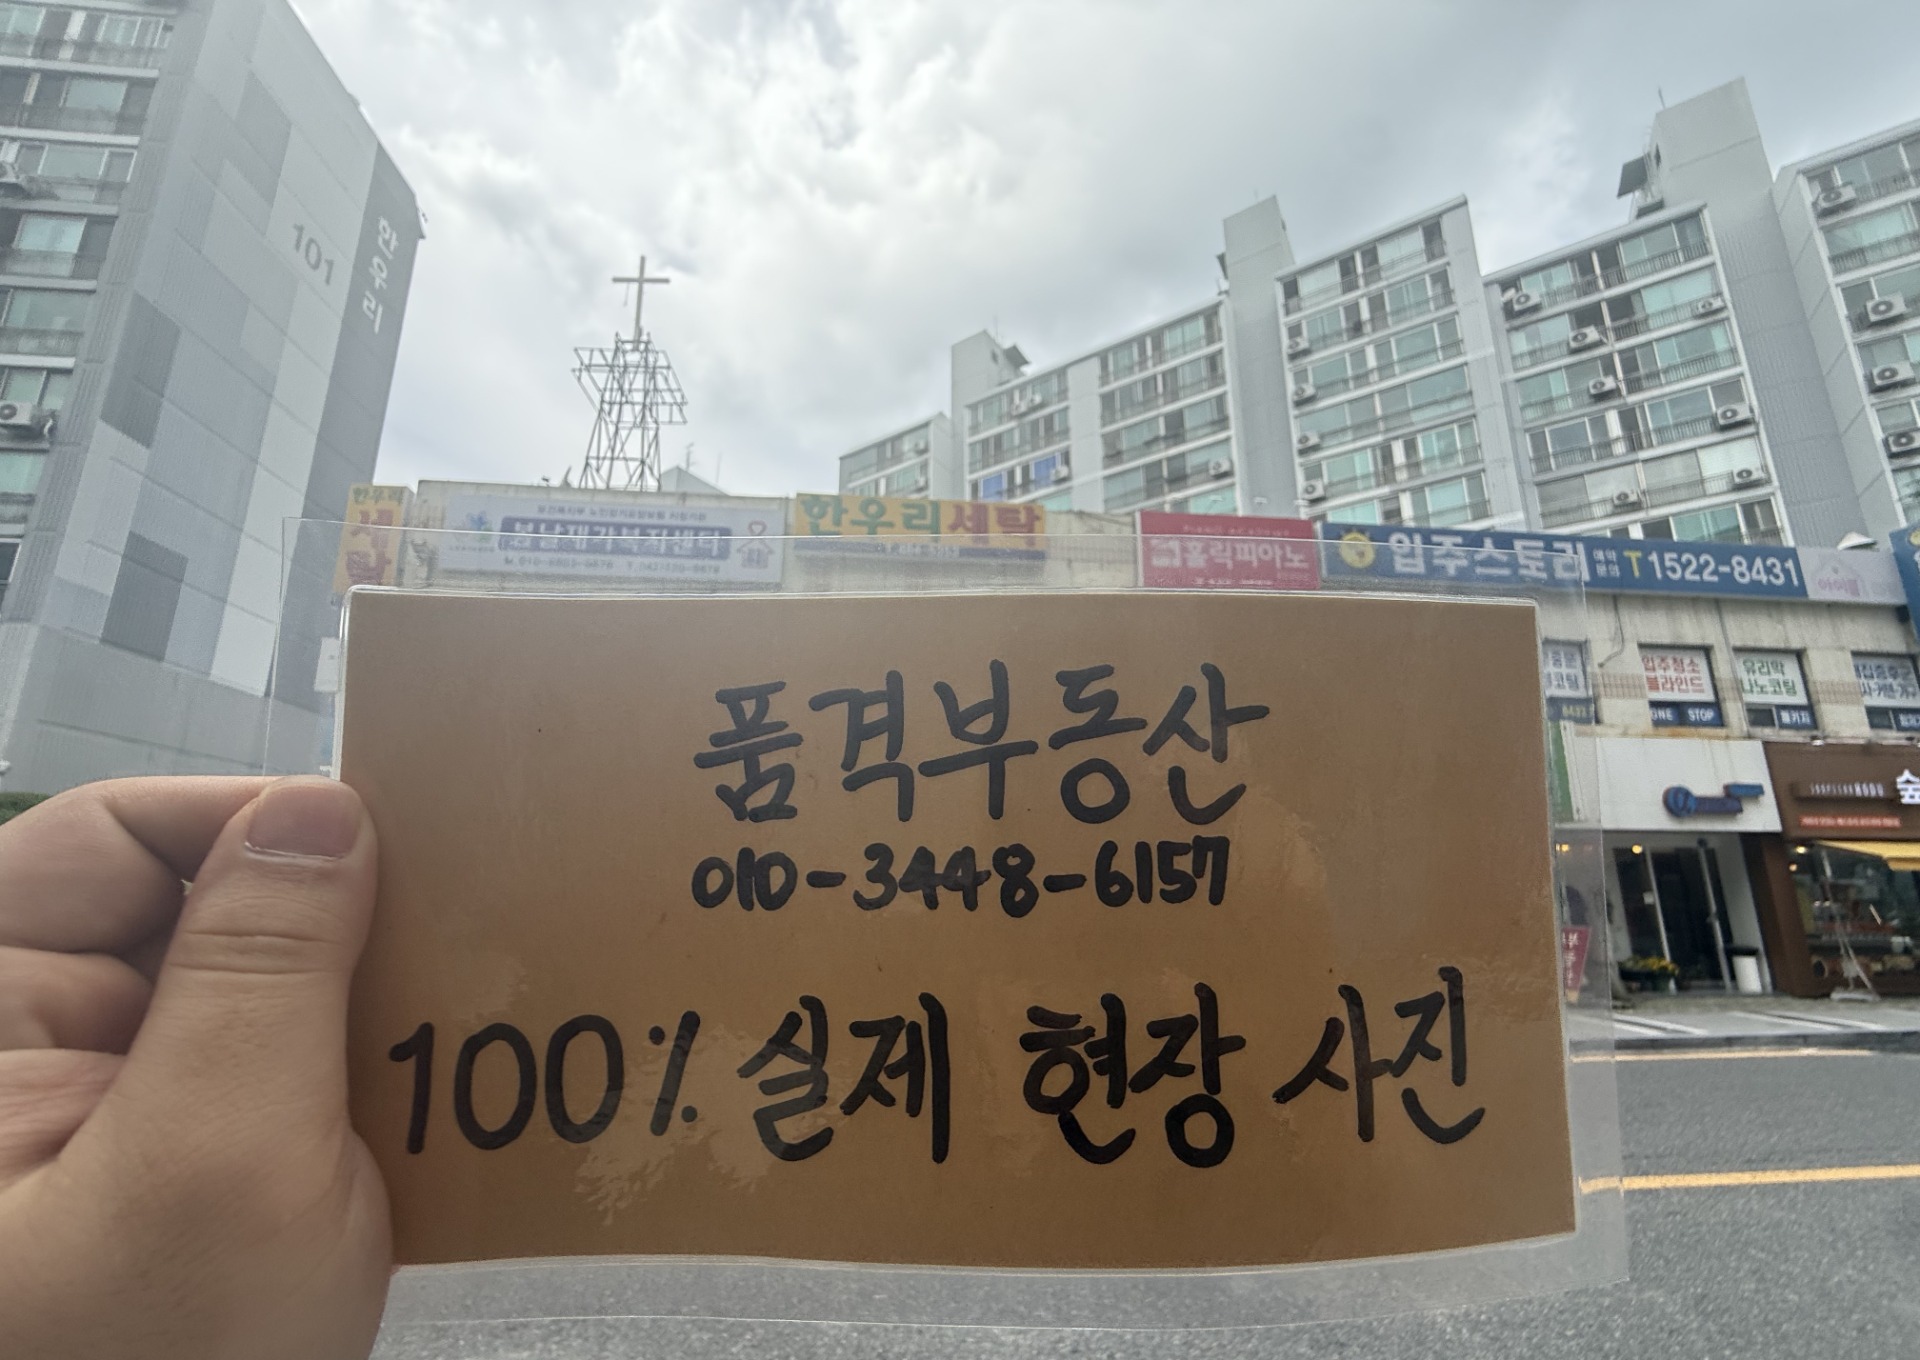 101
한우리
한우리
세탁
봄날재가복지센터
한우리세탁
홀릭피아노
입주스토리 예약문의 T1522-8431
아이볼
입주청소
블라인드
ONE STOP
유리막
나노코팅
새집증후군
품격부동산
010-3448-6157
100% 실제 현장 사진